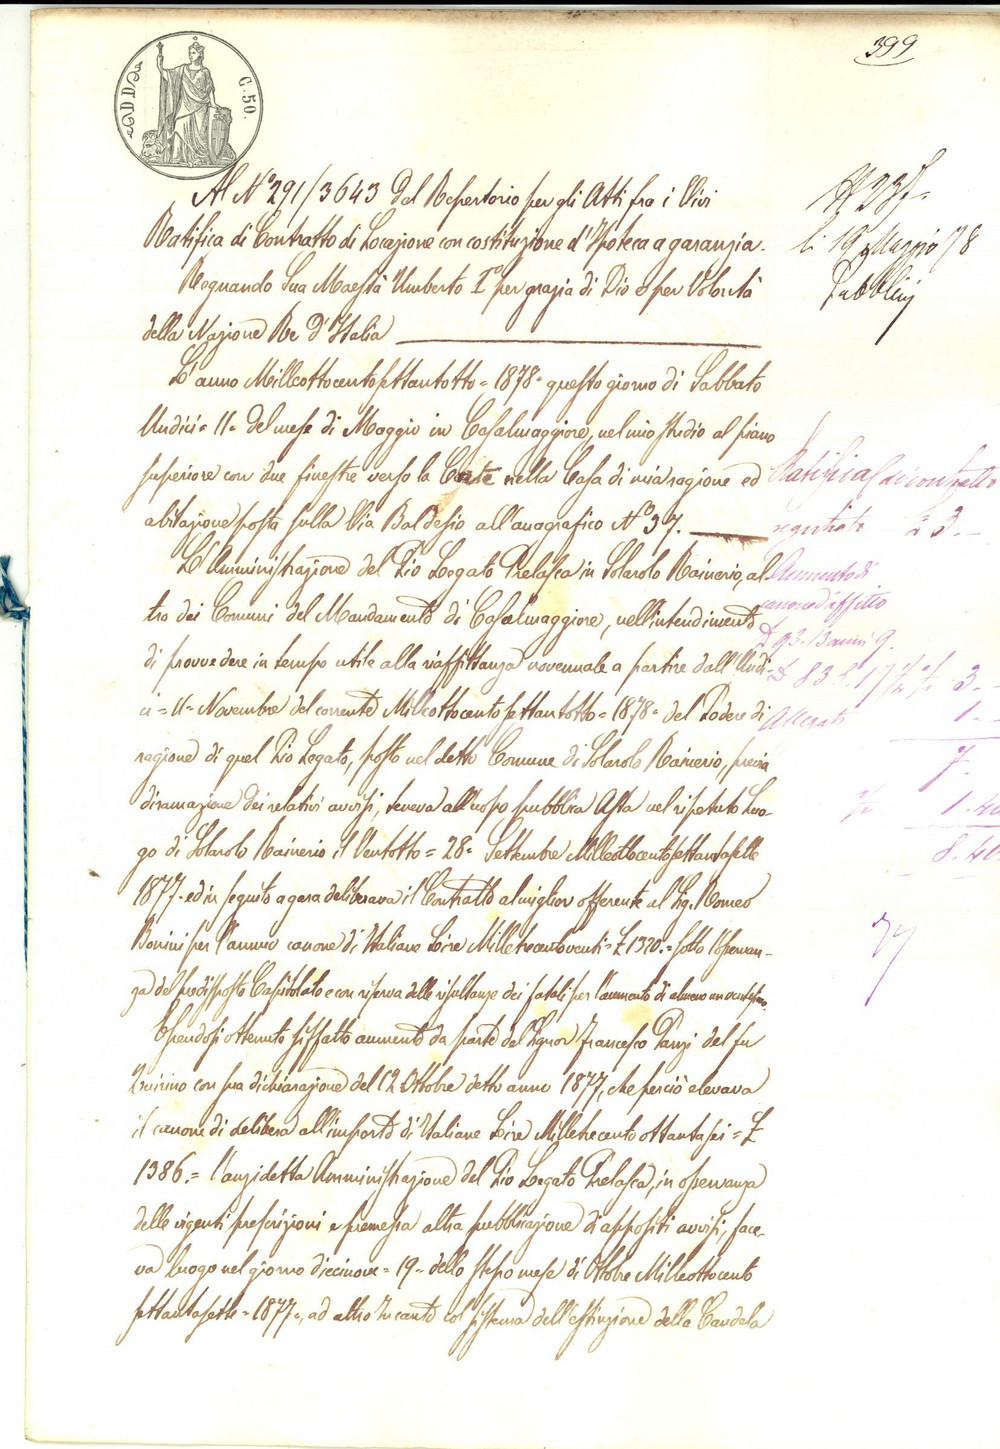 399
C. 50.
Al N.° 291/3643 del Repertorio per gli Atti fra i Vivi
Ratifica di Contratto di Locazione con costituzione d'Ipoteca a garanzia.
Regnando Sua Maestà Umberto I° per grazia di Dio e per Volontà
della Nazione Re D'Italia
L'anno Milleottocentosettantotto = 1878 = questo giorno di Sabbato
Undici = 11 = del mese di Maggio in Casalmaggiore, nel mio studio al piano
superiore con due finestre verso la Corte nella Casa di mia ragione ed
abitazione posta sulla Via Baldesio all'anagrafico N.° 37.
L'Amministrazione del Pio Legato Prelasca in Solarolo Rainerio, al-
tro dei Comuni del Mandamento di Casalmaggiore, nell'intendimento
di provvedere in tempo utile alla riaffittanza novennale a partire dall'Undi-
ci = 11 = Novembre del corrente Milleottocentosettantotto = 1878 = del Podere di
ragione di quel Pio Legato, posto nel detto Comune di Solarolo Rainerio, previa
diramazione dei relativi avvisi, teneva all'uopo pubblica Asta nel ripetuto Luo-
go di Solarolo Rainerio il Ventotto = 28 = Settembre Milleottocentosettantasette
1877 = ed in seguito a gara deliberava il Contratto al miglior offerente al Sig. Romeo
Bonini per l'annuo canone di Italiane Lire Milletrecentoventi = £ 1320. = sotto l'osservan-
za del predisposto Capitolato e con riserva delle risultanze dei fatali per l'aumento di almeno un ventesimo.
Essendosi ottenuto siffatto aumento da parte del Signor Francesco Panzi del fu
Quirino con sua dichiarazione del 12 Ottobre detto anno 1877, che perciò elevava
il canone di delibera all'importo di Italiane Lire Milletrecento ottantasei = £
1386. = l'anzidetta Amministrazione del Pio Legato Prelasca, in osservanza
delle vigenti prescrizioni e premessa altra pubblicazione di appositi avvisi, face-
va luogo nel giorno diecinove = 19 = dello stesso mese di Ottobre Milleottocento
settantasette = 1877 =, ad altro Incanto col sistema dell'estinzione della Candela
li 19 Maggio 78
Ratifica di contratto
registrato £ 3.-
Aumento di
canone d'affitto
3.-
Allegati 1.-
7.
1.40
8.40